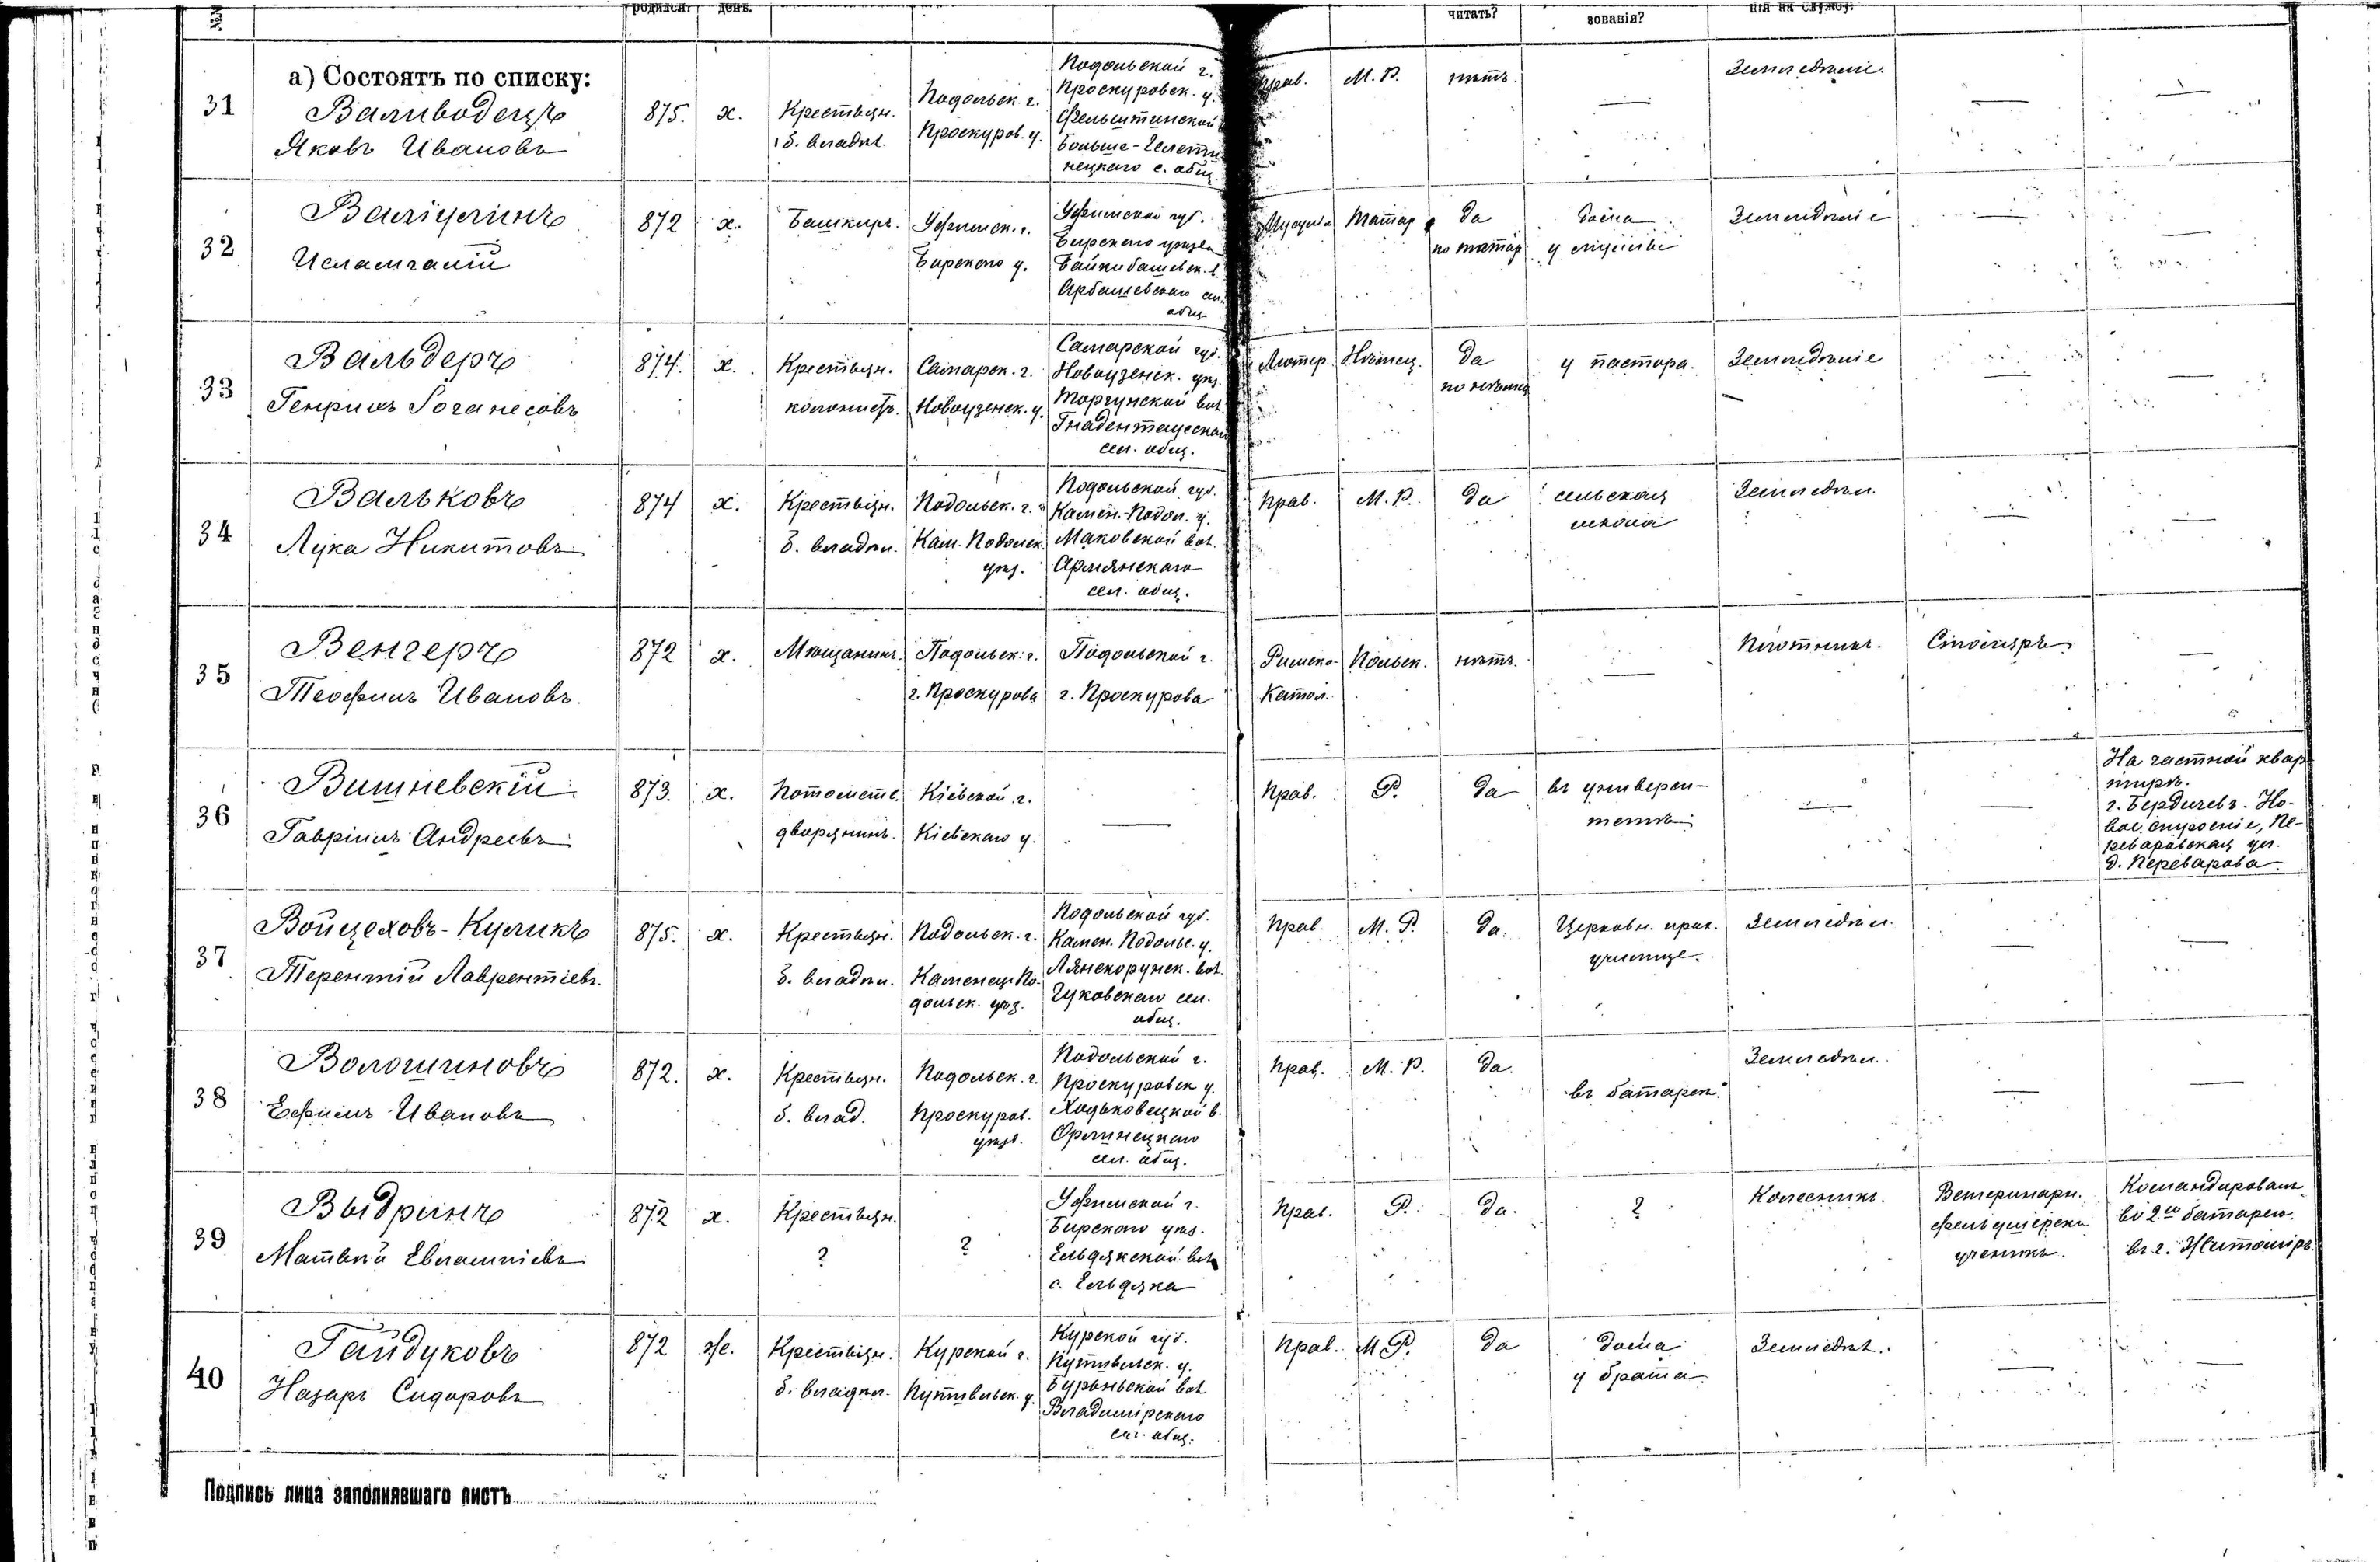 родился. день. читать? зованія? нія на службу.
а) Состоятъ по списку:
31 Валиводецъ 875. х. Крестьян. Подольск. г. Подольской г. Прав. М. Р. нѣтъ. — Земледѣліе. — —
Яковъ Ивановъ б. владѣл. Проскуров. у. Проскуровск. у.
Фельштинской
Больше-
нецкаго с. общ.
32 Валіулинъ 872 х. Башкиръ. Уфимск. г. Уфимской губ. Татар. да дома Земледѣліе — —
Исламгалій Бирскаго у. Бирскаго уѣзда по татар. у муллы
Байкибашевск. в.
Арбашевскаго сел.
общ.
33 Вальдеръ 874. х. Крестьян. Самарск. г. Самарской губ. Лютер. Нѣмец. да у пастора. Земледѣліе — —
Генрихъ Іоганесовъ колонистъ. Новоузенск. у. Новоузенск. уѣз. по нѣмец.
Торгунской вол.
Гнадентауской
сел. общ.
34 Вальковъ 874 х. Крестьян. Подольск. г. Подольской губ. Прав. М. Р. да сельская Земледѣл. — —
Лука Никитовъ б. владѣл. Кам. Подольск. Камен.-Подол. у. школа
уѣз. Маковской вол.
Армянскаго
сел. общ.
35 Венгеръ 872 х. Мѣщанинъ. Подольск. г. Подольской г. Римско- Польск. нѣтъ. — Плотникъ. Столяръ —
Теофилъ Ивановъ. г. Проскурова г. Проскурова Катол.
36 Вишневскій 873. х. Потомств. Кіевской г. — Прав. Р. да въ универси- — — На частной квар
Гавріилъ Андреевъ дворянинъ. Кіевскаго у. тетѣ тирѣ.
г. Бердичевъ. Но-
вое строеніе, Пе-
реваровская ул.
д. Переварова
37 Войцеховъ-Куликъ 875. х. Крестьян. Подольск. г. Подольской губ. Прав. М. Р. да. Церковн. прих. Земледѣл. — —
Терентій Лаврентіевъ. б. владѣл. Каменец По- Камен. Подольс. у. училище
дольск. уѣз. Лянскорунск. вол.
Чуковскаго сел.
общ.
38 Волошиновъ 872. х. Крестьян. Подольск. г. Подольской г. Прав. М. Р. да. въ батареи. Земледѣл. — —
Ефимъ Ивановъ б. влад. Проскуров. Проскуровск у.
уѣзд. Ходьковецкой в.
Орлинецкаго
сел. общ.
39 Выдринъ 872 х. Крестьян. ? Уфимской г. Прав. Р. да. ? Колесникъ. Ветеринарн. Командирован
Матвѣй ? Бирскаго уѣз. фельдшерскій во 2ю батарею.
Ельдякской вол. ученикъ. въ г. Житоміръ.
с. Ельдяка
40 Гайдуковъ 872 ж. Крестьян. Курской г. Курской губ. Прав. М. Р. да дома Земледѣл. — —
Назаръ Сидоровъ б. владѣл. Путивльск. у. Путивльск. у. у брата
Бурынской вол
Владимірскаго
сел. общ.
Подпись лица заполнявшаго листъ